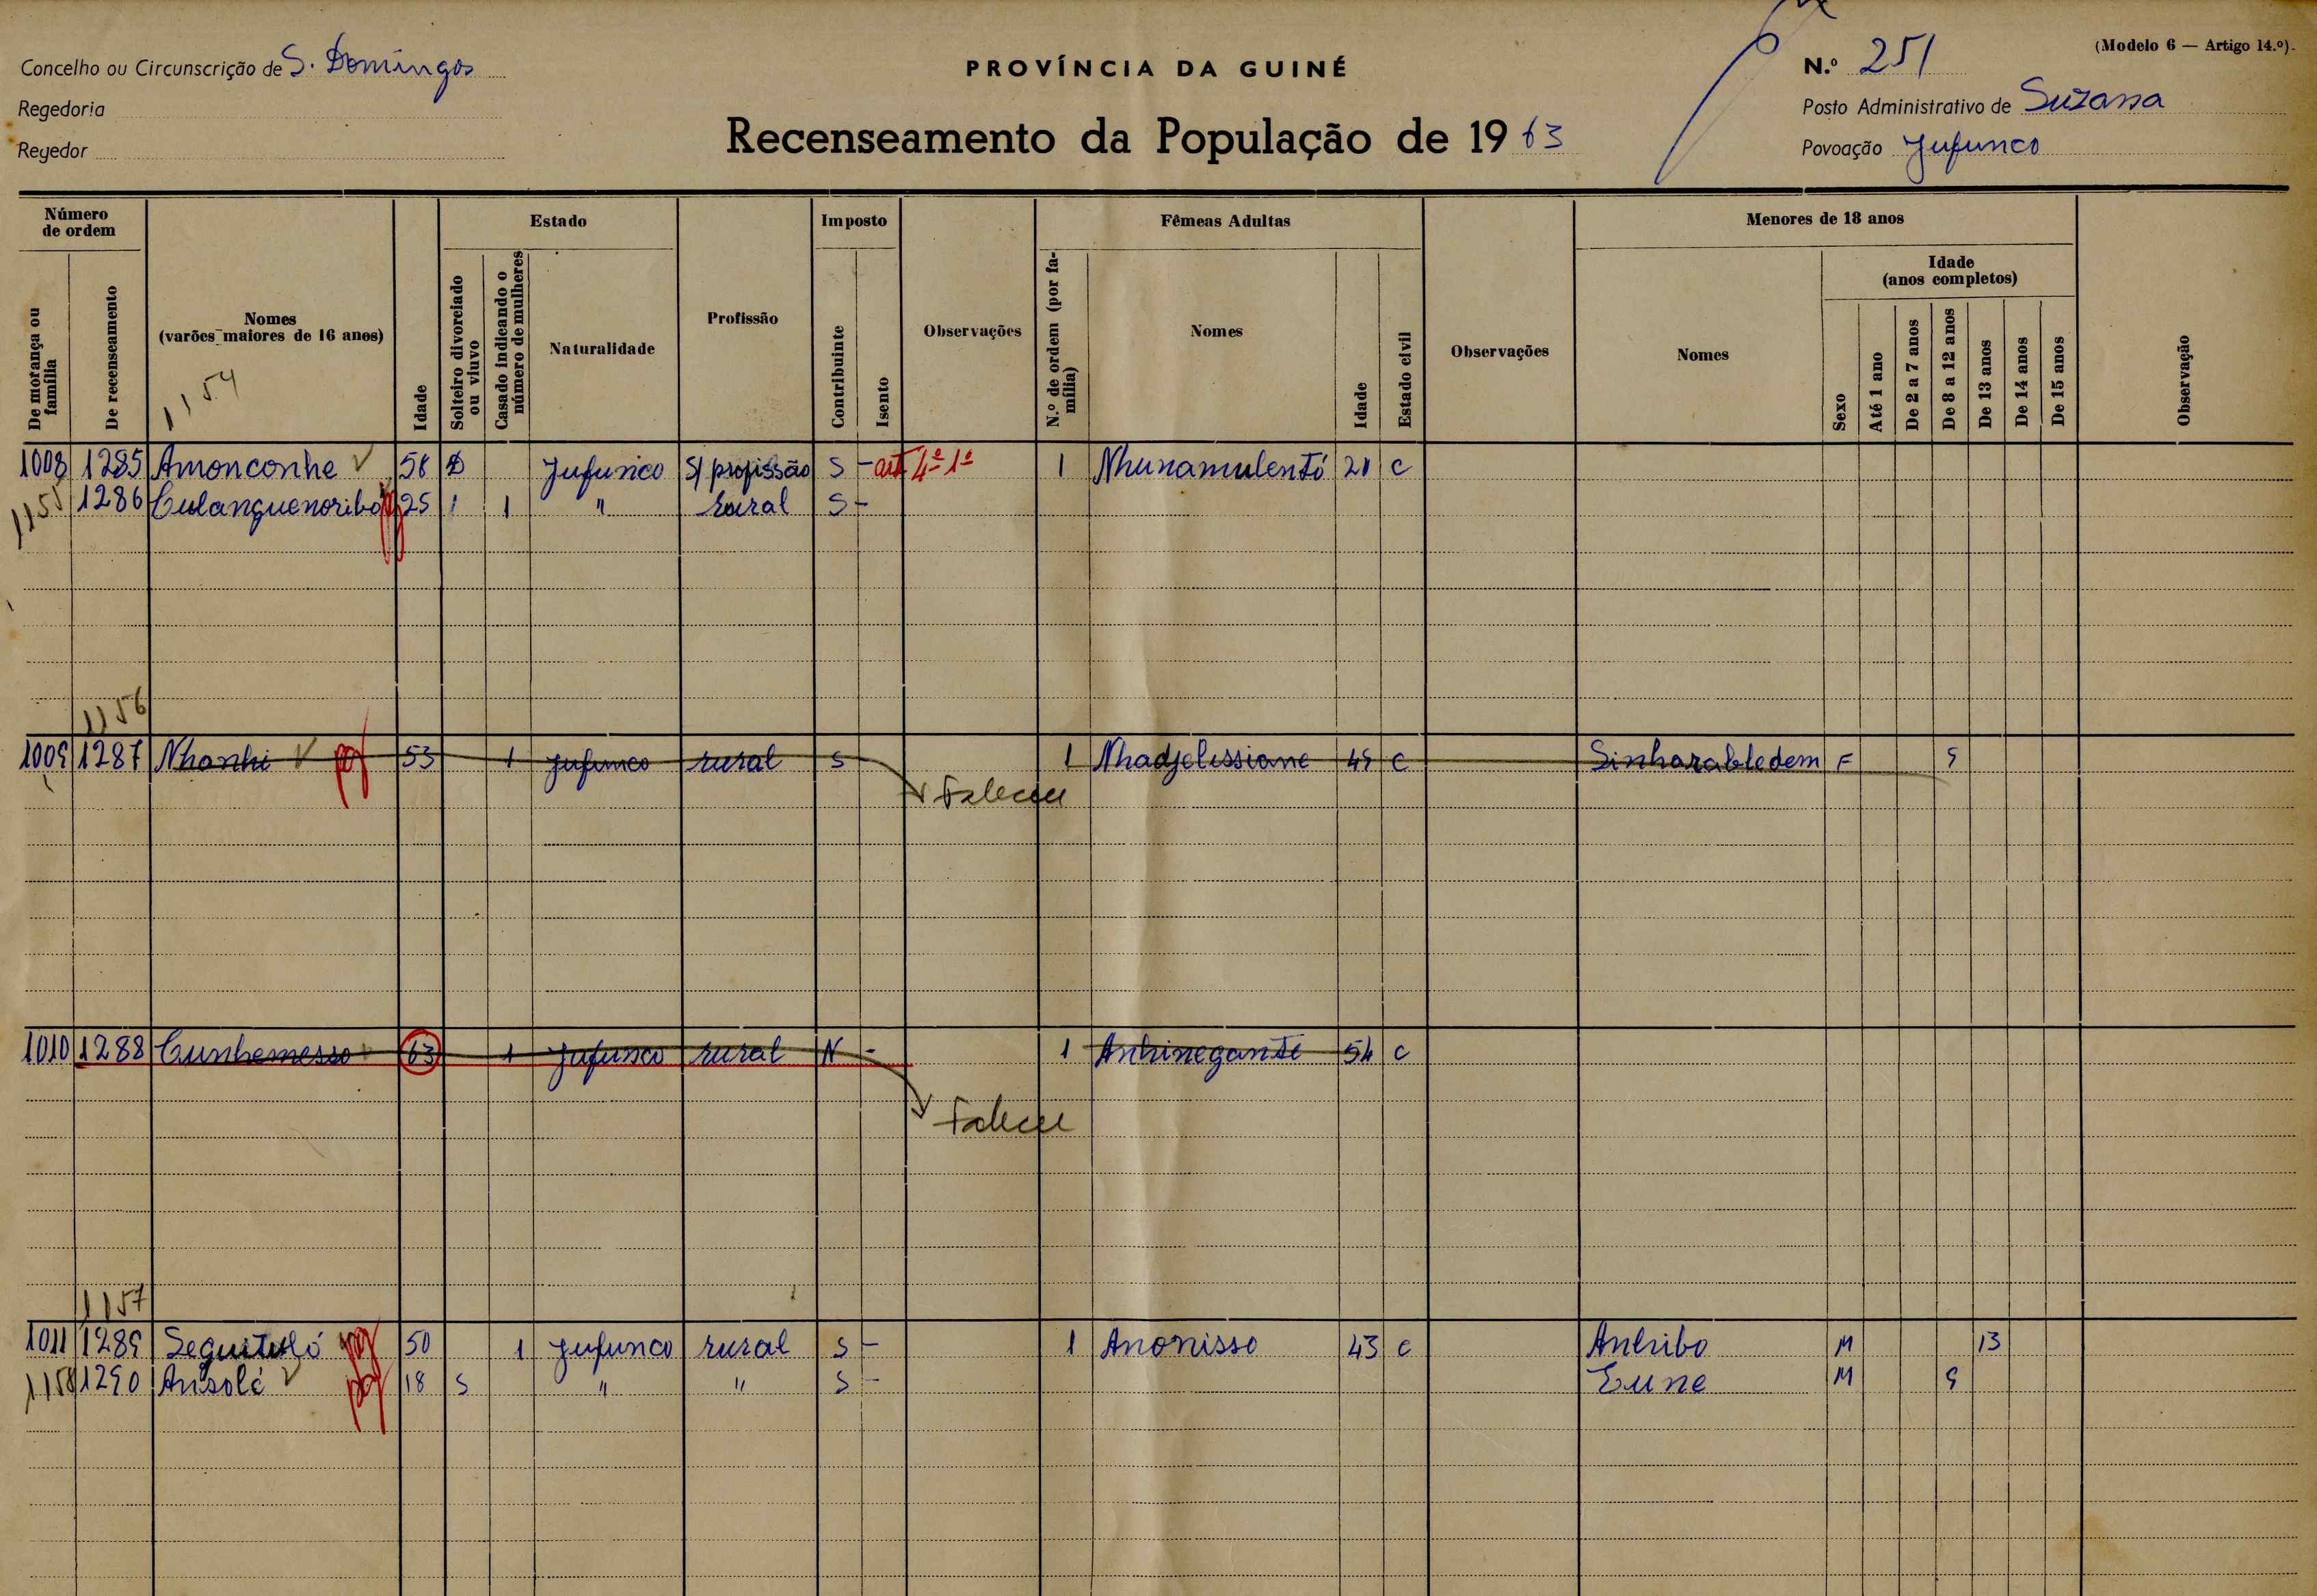 Concelho ou Circunscrição de S. Domingos
Regedoria
Regedor
PROVÍNCIA DA GUINÉ
Recenseamento da População de 1963
(Modelo 6 — Artigo 14.º).
N.º 251
Posto Administrativo de Suzana
Povoação Jufunco
Número de ordem
De morança ou família
De recenseamento
Nomes
(varões maiores de 16 anos)
1154
Idade
Estado
Solteiro divorciado ou viuvo
Casado indicando o número de mulheres
Naturalidade
Profissão
Imposto
Contribuinte
Isento
Observações
Fêmeas Adultas
N.º de ordem (por família)
Nomes
Idade
Estado civil
Observações
Menores de 18 anos
Nomes
Sexo
Idade
(anos completos)
Até 1 ano
De 2 a 7 anos
De 8 a 12 anos
De 13 anos
De 14 anos
De 15 anos
Observação
1008 1285 Amonconhe 58 D Jufunco S/ profissão S - art 4º 1º 1 Nhunamulentó 21 C
1155 1286 Culanguenoribo pg 25 1 1 " rural S -
1156
1009 1287 Nhanhi pg 53 1 Jufunco rural S - 1 Nhadjelissiane 49 C Sinharabledem F 9
Faleceu
1010 1288 Cunhemesso 63 1 Jufunco rural N - 1 Anhinegante 54 C
Faleceu
1157
1011 1289 pg 50 1 Jufunco rural S - 1 Anonisso 43 C Anhibo M 13
1158 1290 Ansolé pg 18 S " " S - Eune M 9